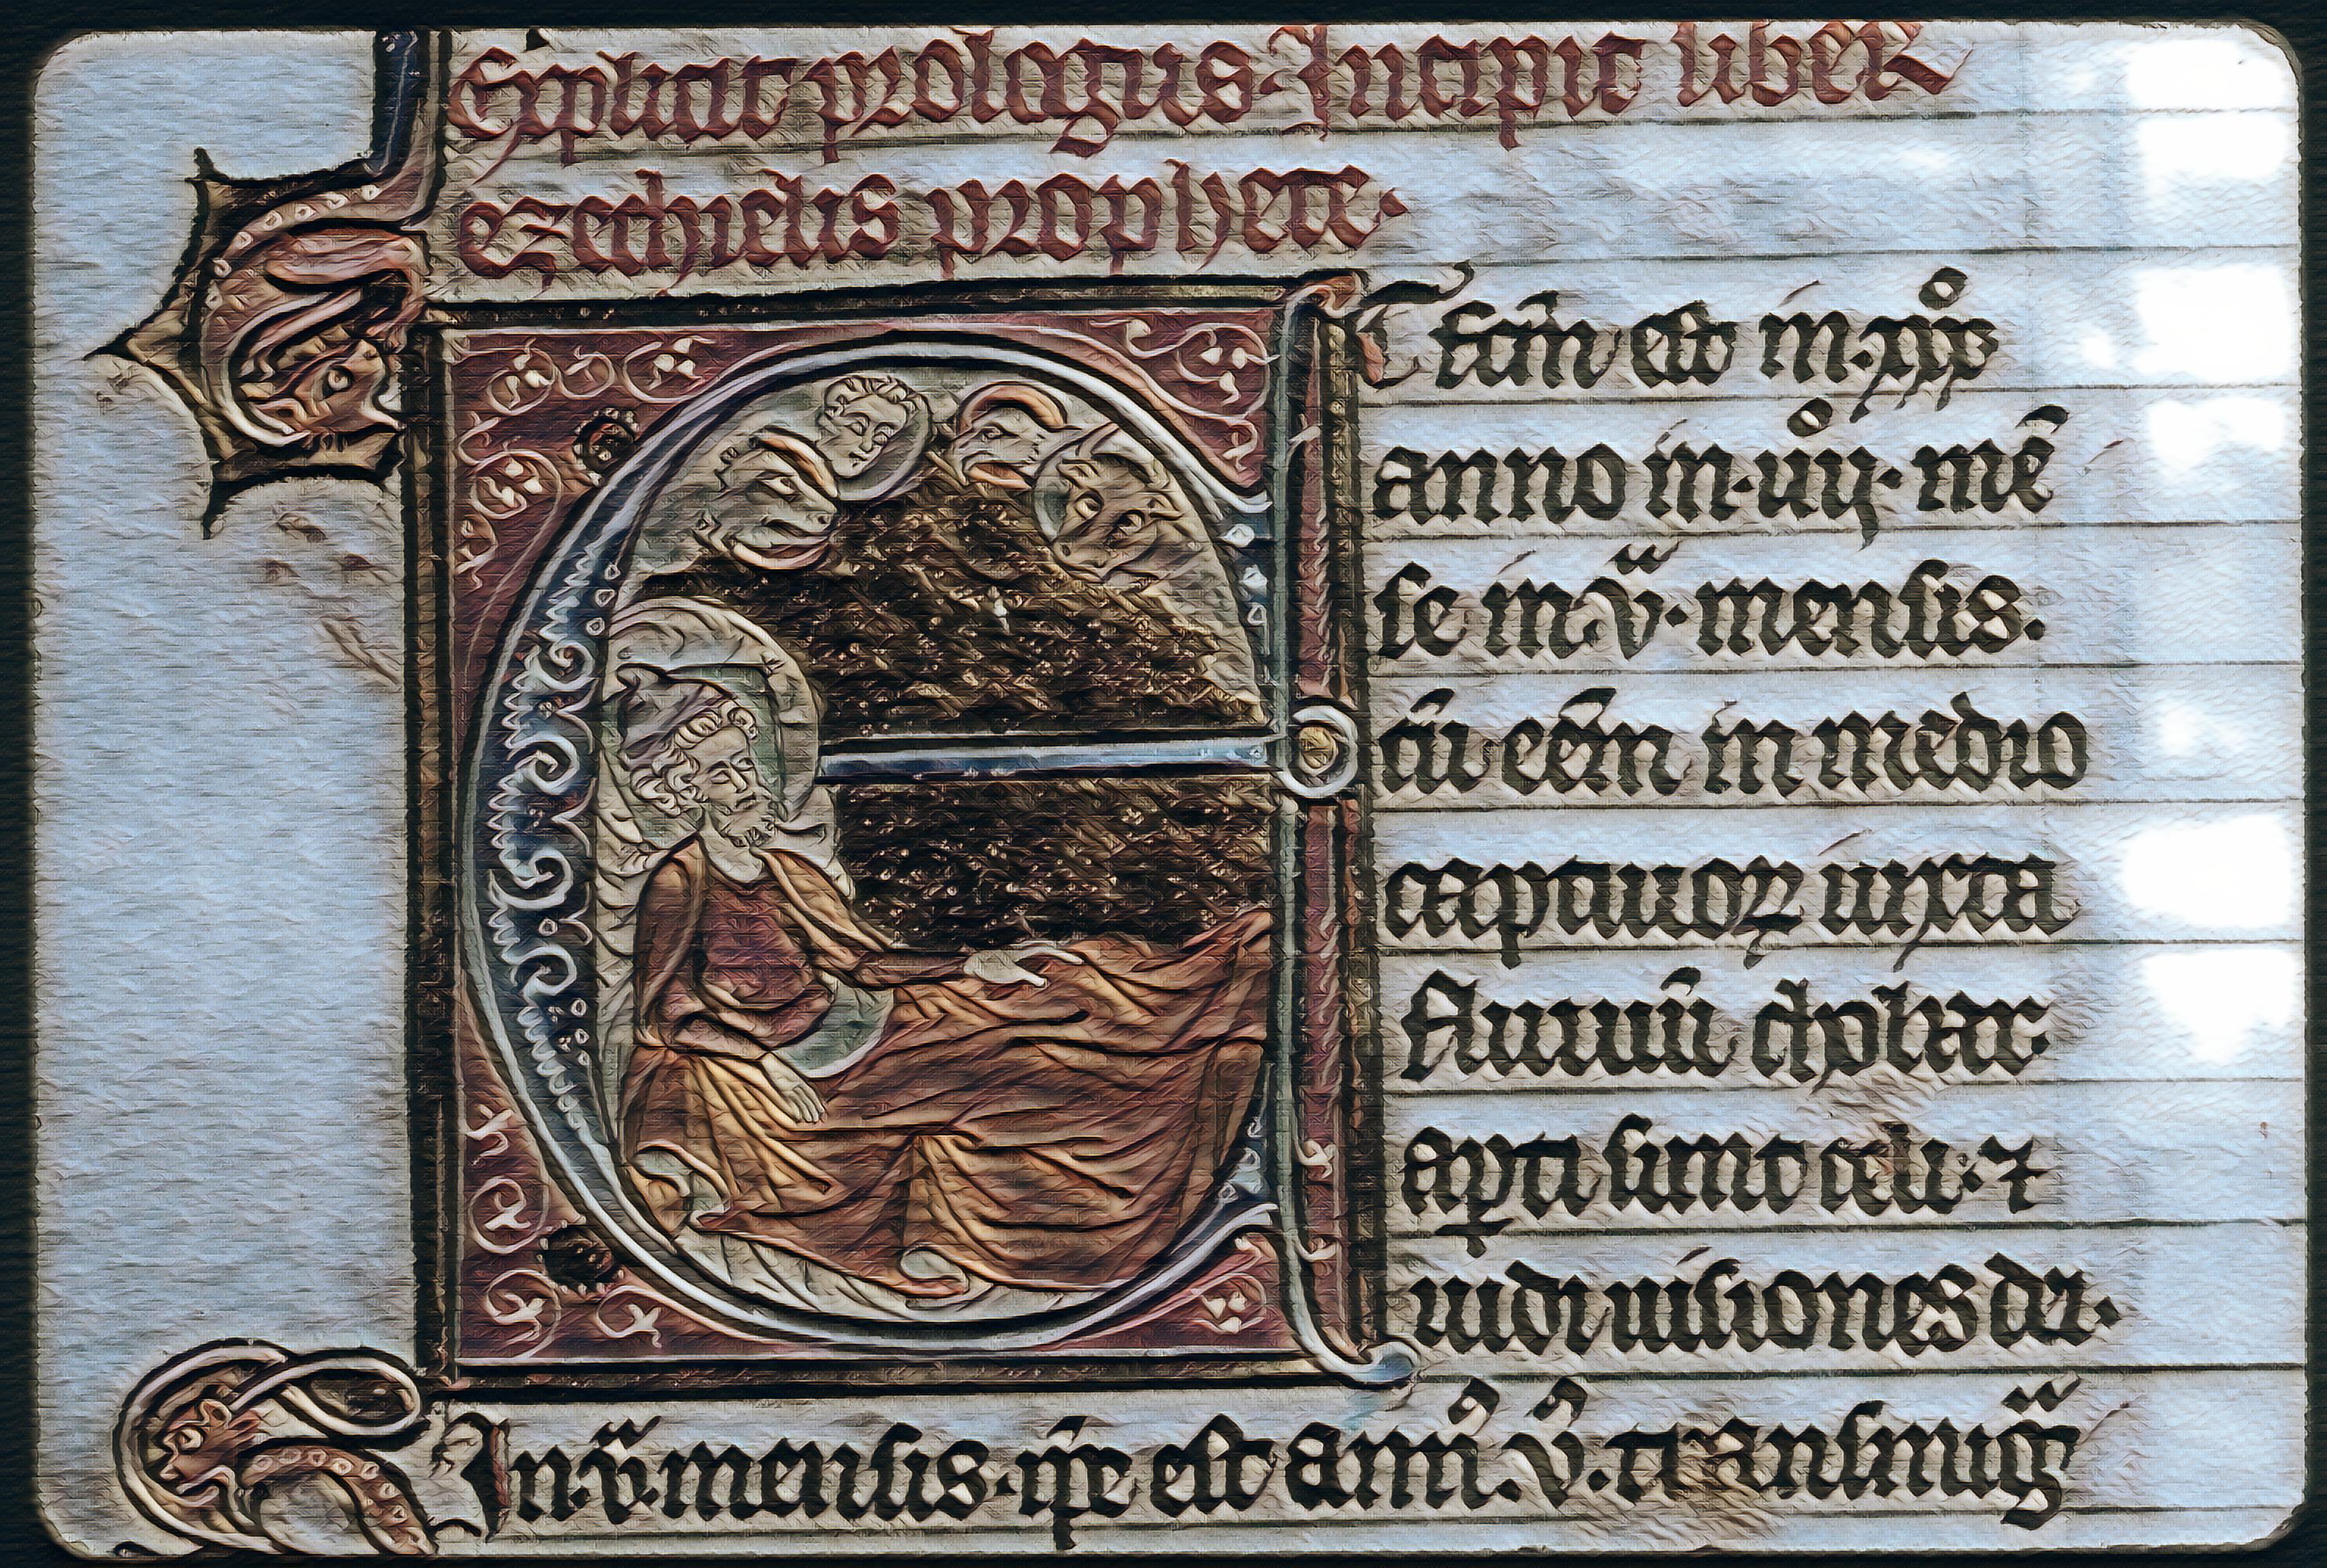 Explicit prologus. Incipit liber
ezechielis prophete.
T factū est in .xxxº
anno in .iiiiº. mē
se in .vª. mensis.
cū eēm in medio
captiuoꝝ iuxta
fluuiū chobar
apti sunt celi: ⁊
uidi uisiones dei.
In .vª. mensis. ip̄e est ann9 .v9. transmigͣ